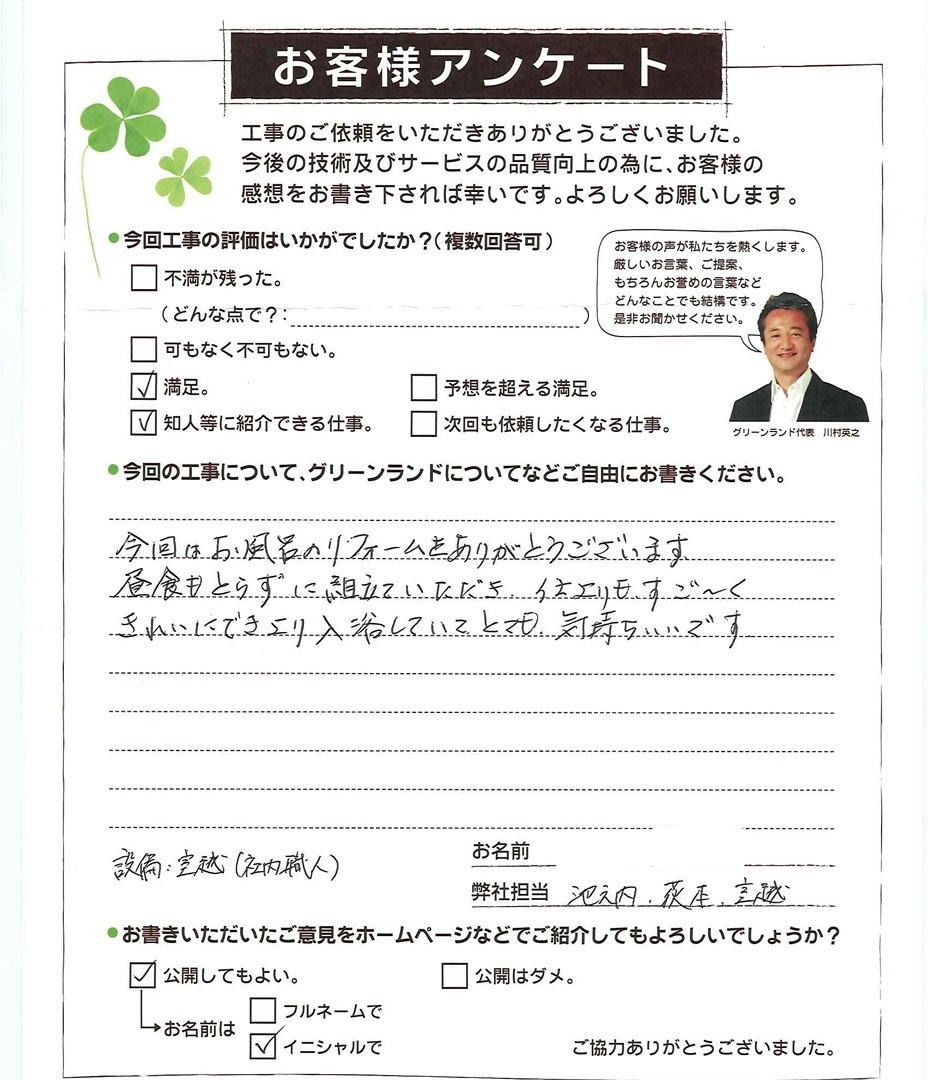 お客様アンケート
工事のご依頼をいただきありがとうございました。
今後の技術及びサービスの品質向上の為に、お客様の
感想をお書き下されば幸いです。よろしくお願いします。
●今回工事の評価はいかがでしたか？（複数回答可）
不満が残った。
（どんな点で？：　　　）
可もなく不可もない。
満足。
予想を超える満足。
知人等に紹介できる仕事。
次回も依頼したくなる仕事。
お客様の声が私たちを熱くします。
厳しいお言葉、ご提案、
もちろんお誉めの言葉など
どんなことでも結構です。
是非お聞かせください。
グリーンランド代表　川村英之
●今回の工事について、グリーンランドについてなどご自由にお書きください。
今回はお風呂のリフォームをありがとうございます
昼食もとらずに組立ていただき、すご〜く
きれいにできより入浴していてとても、気持ちいいです
設備：宮越（社内職人）
お名前
弊社担当　池之内、荻本、宮越
●お書きいただいたご意見をホームページなどでご紹介してもよろしいでしょうか？
公開してもよい。
公開はダメ。
お名前は
フルネームで
イニシャルで
ご協力ありがとうございました。